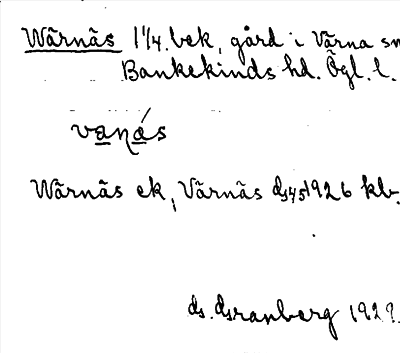 Wärnäs 1 1/4. bek, gård i Värna sn
Bankekinds hd. Ögl. l.
vanás
Wärnäs ek, Värnäs 1926 kb.
1929.